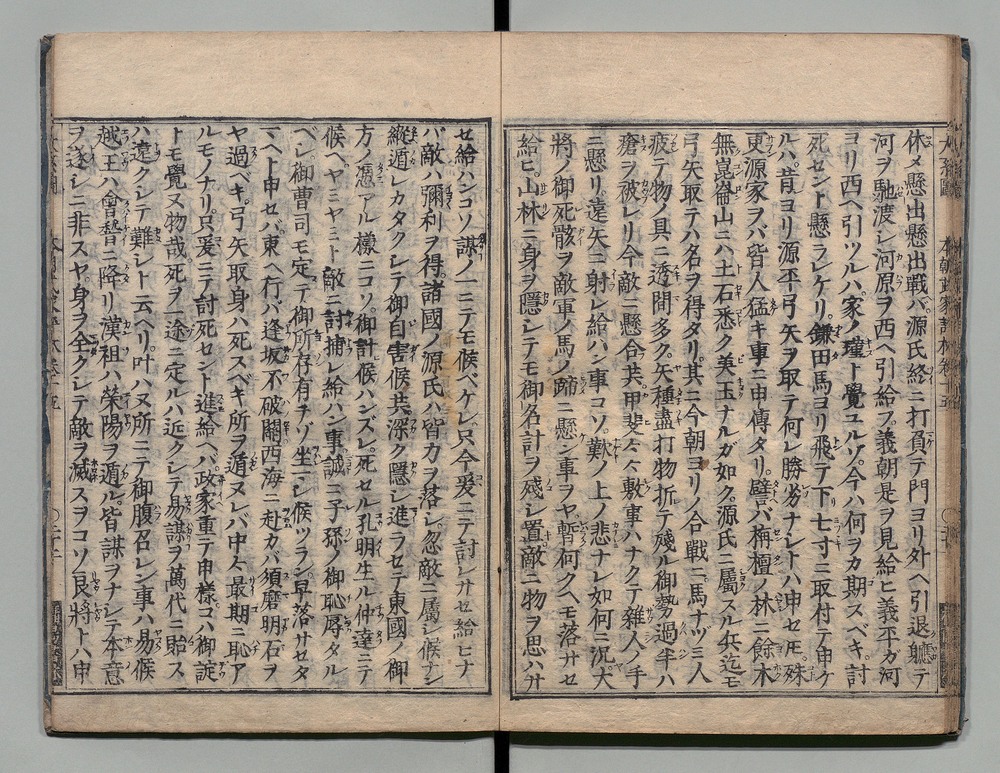 休メ懸出懸出戰バ源氏終ニ打負テ門ヨリ外ヘ引退軈テ
河ヲ馳渡シ河原ヲ西ヘ引給フ義朝是ヲ見給ヒ義平カ河
ヨリ西ヘ引ツルハ家ノ瑾ト覺ユルゾ今ハ何ヲカ期スベキ討
死セント懸ラレケリ鎌田馬ヨリ飛テ下七寸ニ取付テ申ケ
ルハ昔ヨリ源平弓矢ヲ取テ何レ勝劣ナシトハ申セ𪜈殊
更源家ヲバ皆人猛キ事ニ申傳タリ譬バ栴檀ノ林ニ餘木
無崑崙山ニハ土石悉ク美玉ナルガ如ク源氏ニ屬スル兵迄モ
弓矢取テハ名ヲ得タリ其ニ今朝ヨリノ合戰ニ馬ナヅミ人
疲テ物ノ具ニ透間多ク矢種盡打物折テ殘ル御勢過半ハ
瘡ヲ被レリ今敵ニ懸合共甲斐々々敷事ハナクテ雜人ノ手
ニ懸リ遠矢ニ射レ給ハン事コソ歎ノ上ノ悲ナレ如何ニ况大
將ノ御死骸ヲ敵軍ノ馬ノ蹄ニ懸ン事ヲヤ暫何クヘモ落サセ
給ヒ山林ニ身ヲ隱シテモ御名計ヲ殘シ置敵ニ物ヲ思ハサ
セ給ハンコソ謀ノ一ニテモ候ベケレ只今爰ニテ討レサセ給ヒナ
バ敵ハ彌利ヲ得諸國ノ源氏ハ皆力ヲ落シ忽敵ニ屬シ候ナン
縱遁レカタクシテ御自害候共深ク隱シ進ラセテ東國ノ御
方ノ憑アル樣ニコソ御計候ハンズレ死セル孔明生ル仲達ニテ
候ヘヤミヤミト敵ニ討捕レ給ハン事誠ニ子孫ノ御恥辱タル
ベシ御曹司モ定テ御所存有テゾ坐シ候ツラン早落サセタ
マヘト申セバ東ヘ行バ逢坂不破關西海ニ赴カバ須磨明石ヲ
ヤ過ベキ弓矢取身ハ死スベキ所ヲ遁ヌレバ中々最期ニ恥ア
ルモノナリ只爰ニテ討死セント進給ヘバ政家重テ申樣コハ御諚
トモ覺ヌ物哉死ヲ一途ニ定ルハ近クシテ易謀ヲ萬代ニ貽ス
ハ遠クシテ難シト云ヘリ叶ハヌ所ニテ御腹召レン事ハ易候
越王ハ會𥡴ニ降リ漢祖ハ榮陽ヲ遁ル皆謀ヲナシテ本意
ヲ遂シニ非スヤ身ヲ全クシテ敵ヲ滅スヲコソ良將トハ申